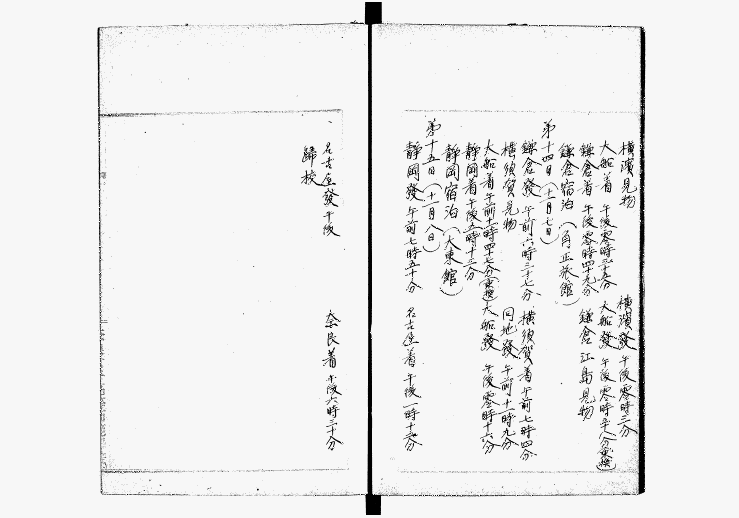 横濱見物　横濱發 午後零時三分
大船着 午後零時三十五分　大船發 午後零時五十八分(乗換)
鎌倉着 午後零時四十九分　鎌倉江島見物
鎌倉宿泊(角正旅館)
第十四日(十一月七日)
鎌倉發 午前六時三十七分　横須賀着 午前七時四分
横須賀見物　同地發 午前十一時九分
大船着 午前十一時四十七分(乗換)　大船發 午後零時十六分
静岡着 午後五時十三分
静岡宿泊(大東館)
第十五日(十一月八日)
静岡發 午前七時五十分　名古屋着 午後一時十五分
名古屋發 午後　奈良着 午後六時三十分
歸校